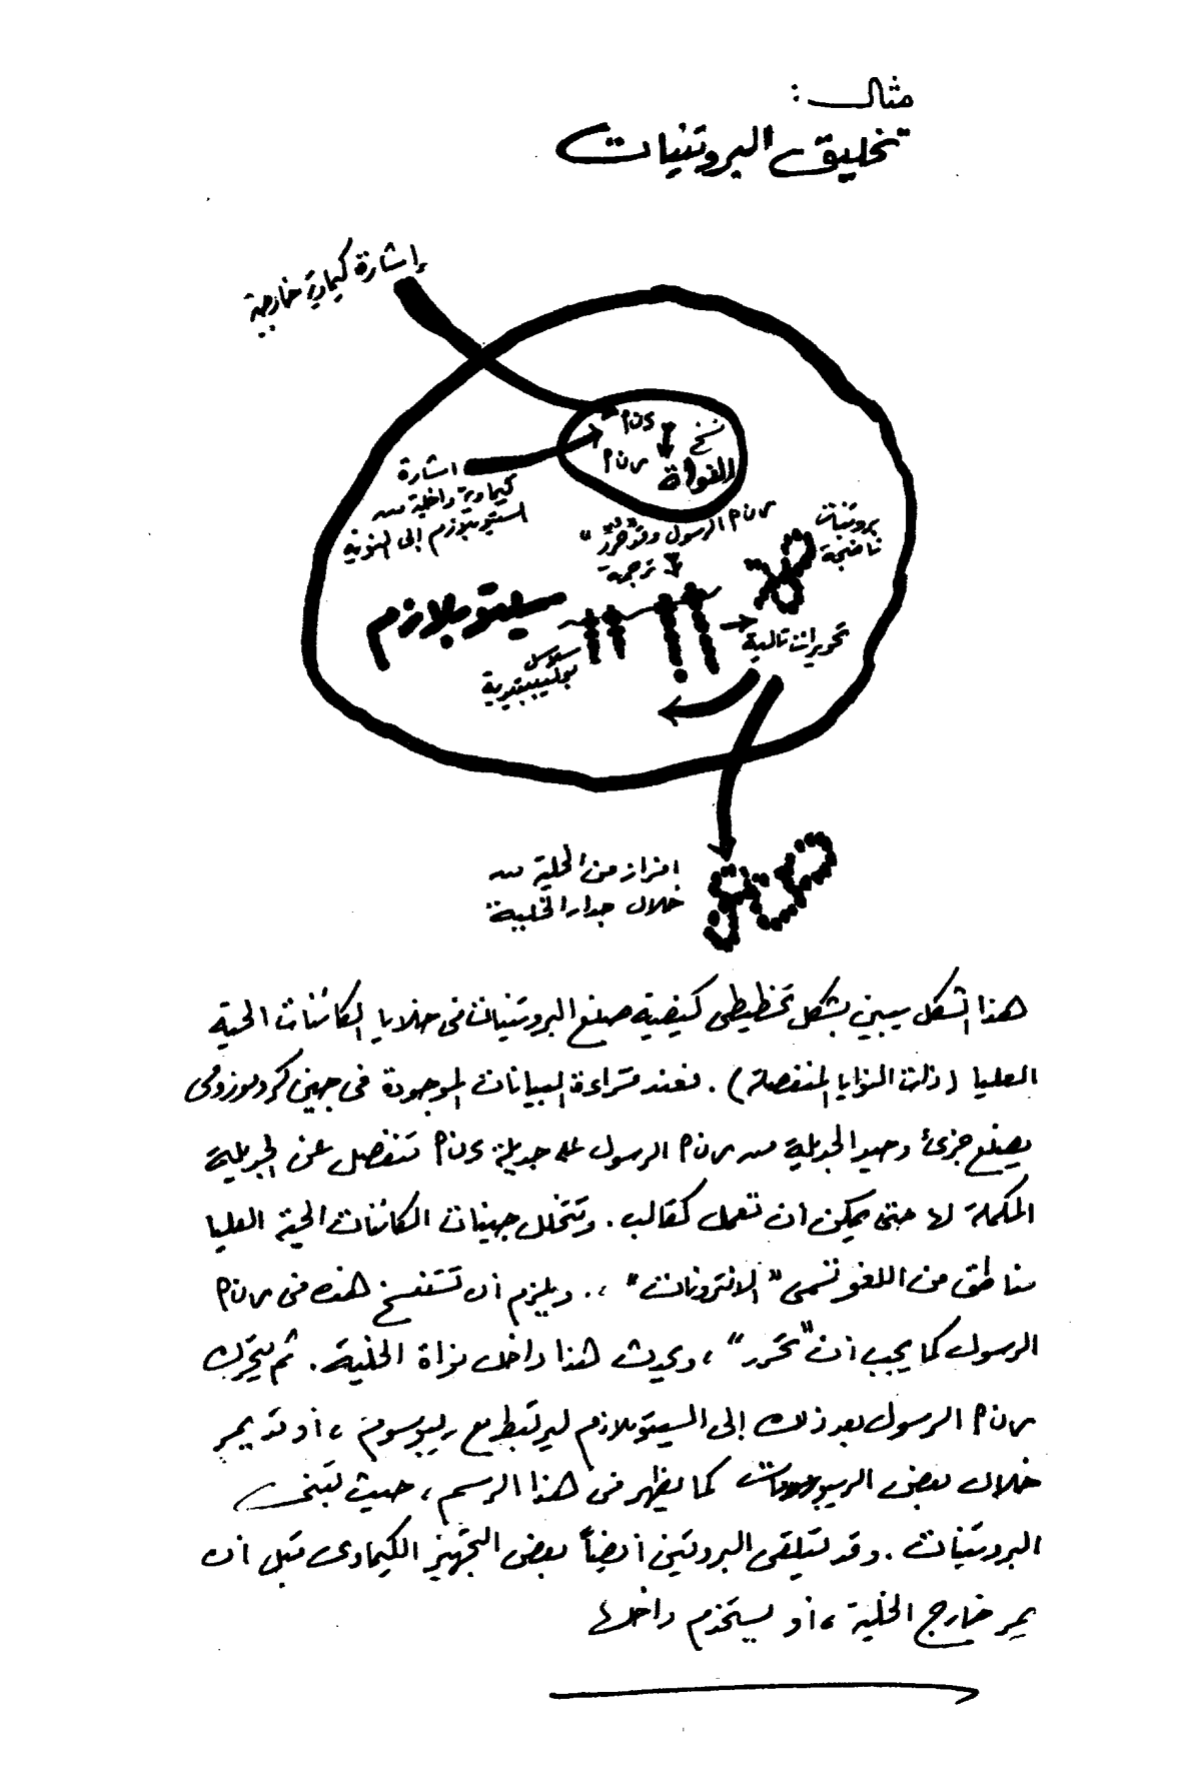 مثال :
تخليق البروتنيات
إشارة كيماوية خارجية
د ن أ
نسخ
ر ن أ
النواة
اشارة
كيماوية داخلية من
السيتوبلازم إلى النوية
ر ن أ الرسول وقد "حرر"
ترجمة
بروتنيات
ناضجة
سيتوبلازم
سلاسل
بوليببتيدية
تحويرات تالية
افراز من الخلية من
خلال جدار الخلية
هذا الشكل يبين بشكل تخطيطى كيفية صنع البروتنيات فى خلايا الكائنات الحية
العليا (ذات النوايا المنفصلة) . فعند قراءة البيانات الموجودة فى جين كروموزومى
يصنع جزئ وحيد الجديلة من ر ن أ الرسول على جديلة د ن أ تنفصل عن الجديلة
المكملة لها حتى يمكن ان تعمل كقالب . وتتخلل جينات الكائنات الحية العليا
مناطق من اللغو تسمى "الانترونات" ، . ويلزم أن تستنسخ هذه فى ر ن أ
الرسول كما يجب ان "تحرر" ، ويحدث هذا داخل نواة الخلية . ثم يتحرك
ر ن أ الرسول بعد ذلك إلى السيتوبلازم ليرتبط مع ريبوسوم ، أو قد يمر
خلال بعض الريبوسومات كما يظهر فى هذا الرسم ، حيث تبنى
البروتنيات . وقد يتلقى البروتين أيضاً بعض التجهيز الكيماوى قبل أن
يمر خارج الخلية ، أو يستخدم داخلها